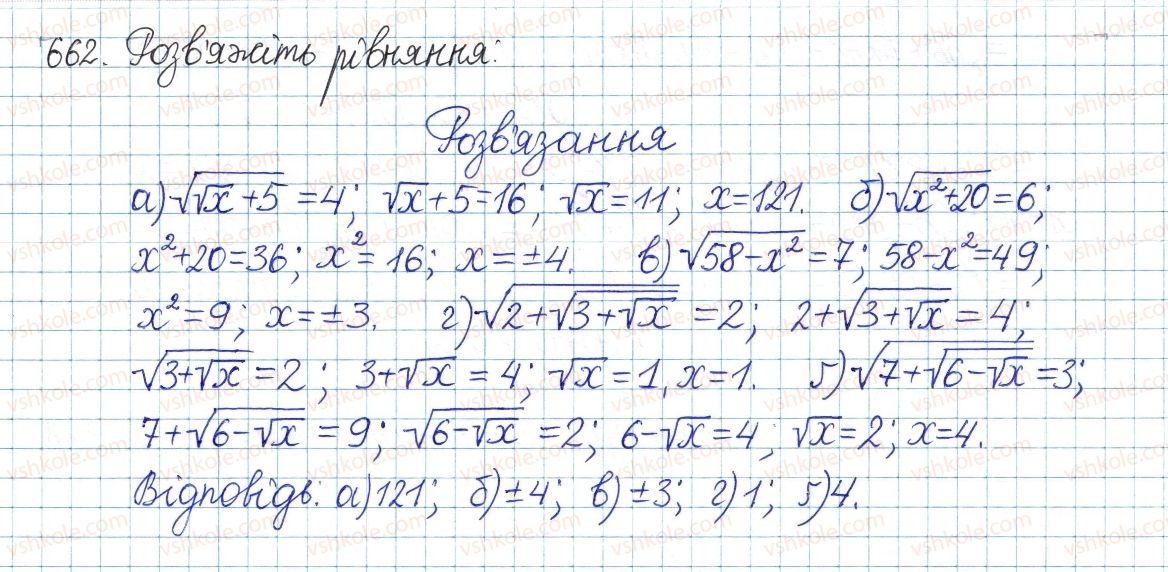 662. Розв'яжіть рівняння:
Розв'язання
а) √(√x + 5) = 4; √x + 5 = 16; √x = 11; x = 121. б) √(x² + 20) = 6;
x² + 20 = 36; x² = 16; x = ±4. в) √(58 - x²) = 7; 58 - x² = 49;
x² = 9; x = ±3. г) √(2 + √(3 + √x)) = 2; 2 + √(3 + √x) = 4;
√(3 + √x) = 2; 3 + √x = 4; √x = 1, x = 1. ґ) √(7 + √(6 - √x)) = 3;
7 + √(6 - √x) = 9; √(6 - √x) = 2; 6 - √x = 4; √x = 2; x = 4.
Відповідь: а) 121; б) ±4; в) ±3; г) 1; ґ) 4.